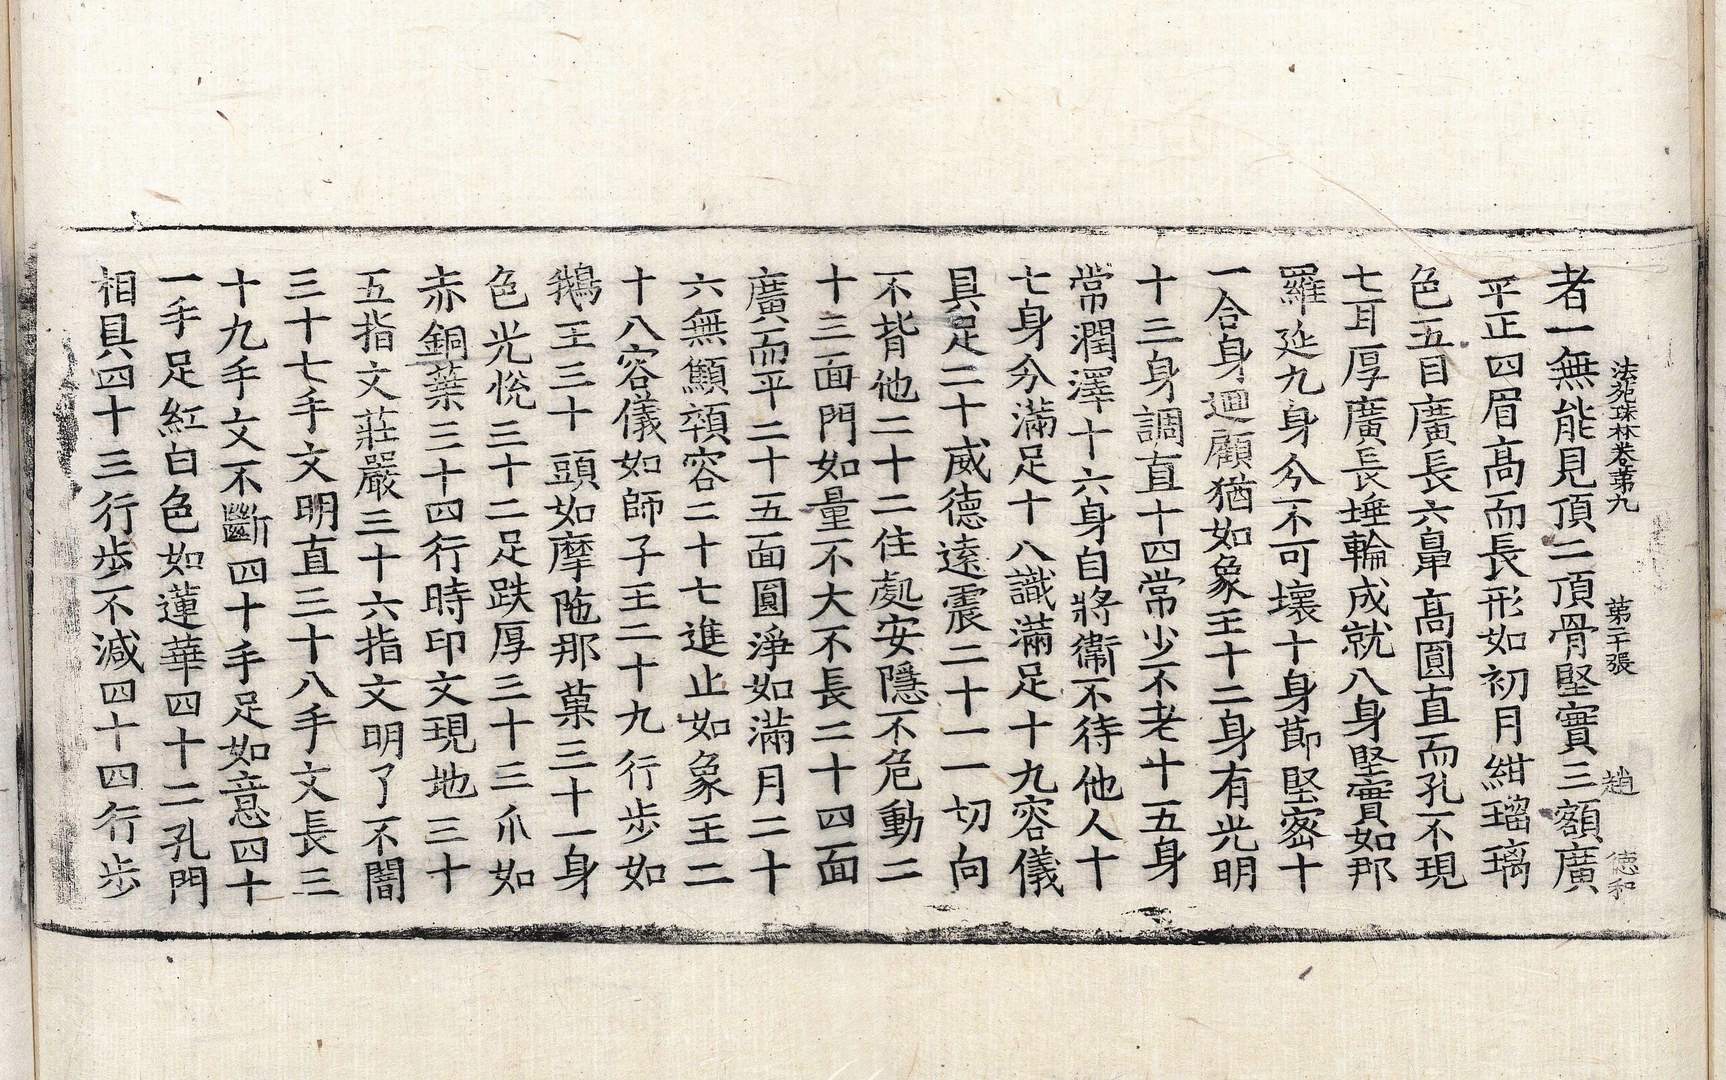 法苑珠林卷第九 第二十張 趙 德和
者一無能見頂二頂骨堅實三額廣
平正四眉高而長形如初月紺瑠璃
色五目廣長六鼻高圓直而孔不現
七耳厚廣長埵輪成就八身堅實如那
羅延九身分不可壞十身節堅密十
一合身迴顧猶如象王十二身有光明
十三身調直十四常少不老十五身
常潤澤十六身自將衛不待他人十
七身分滿足十八識滿足十九容儀
具足二十威德遠震二十一一切向
不背他二十二住處安隱不危動二
十三面門如量不大不長二十四面
廣而平二十五面圓淨如滿月二十
六無顦顇容二十七進止如象王二
十八容儀如師子王二十九行步如
鵝王三十頭如摩陁那菓三十一身
色光悅三十二足趺厚三十三爪如
赤銅葉三十四行時印文現地三十
五指文莊嚴三十六指文明了不闇
三十七手文明直三十八手文長三
十九手文不斷四十手足如意四十
一手足紅白色如蓮華四十二孔門
相具四十三行步不減四十四行步